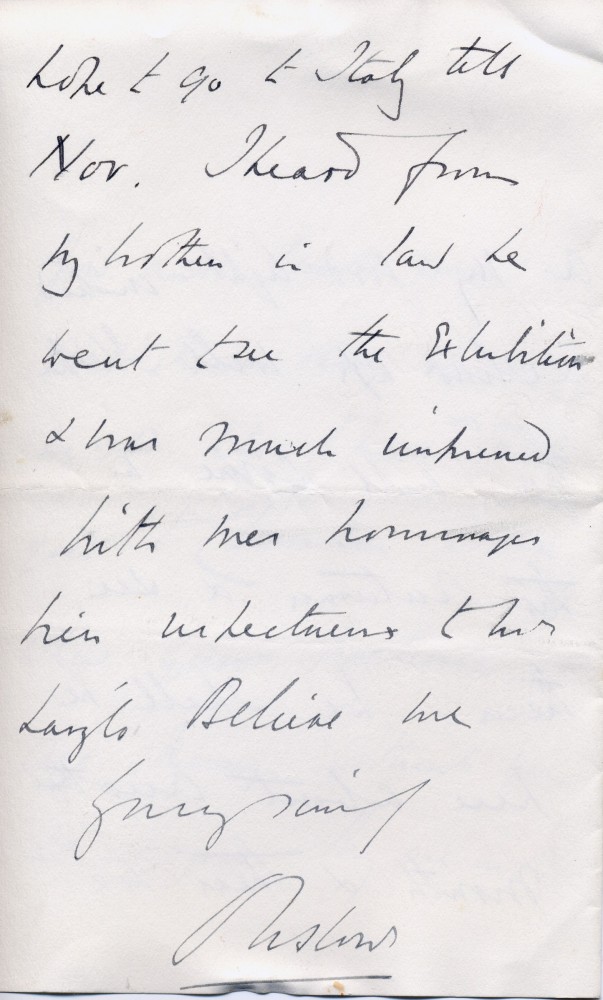 hope to go to Italy till
Nov. I heard from
my brother in law he
went to see the Exhibition
& was much impressed
With mes hommages
bien respectueux to Mrs
László Believe me
Onslow